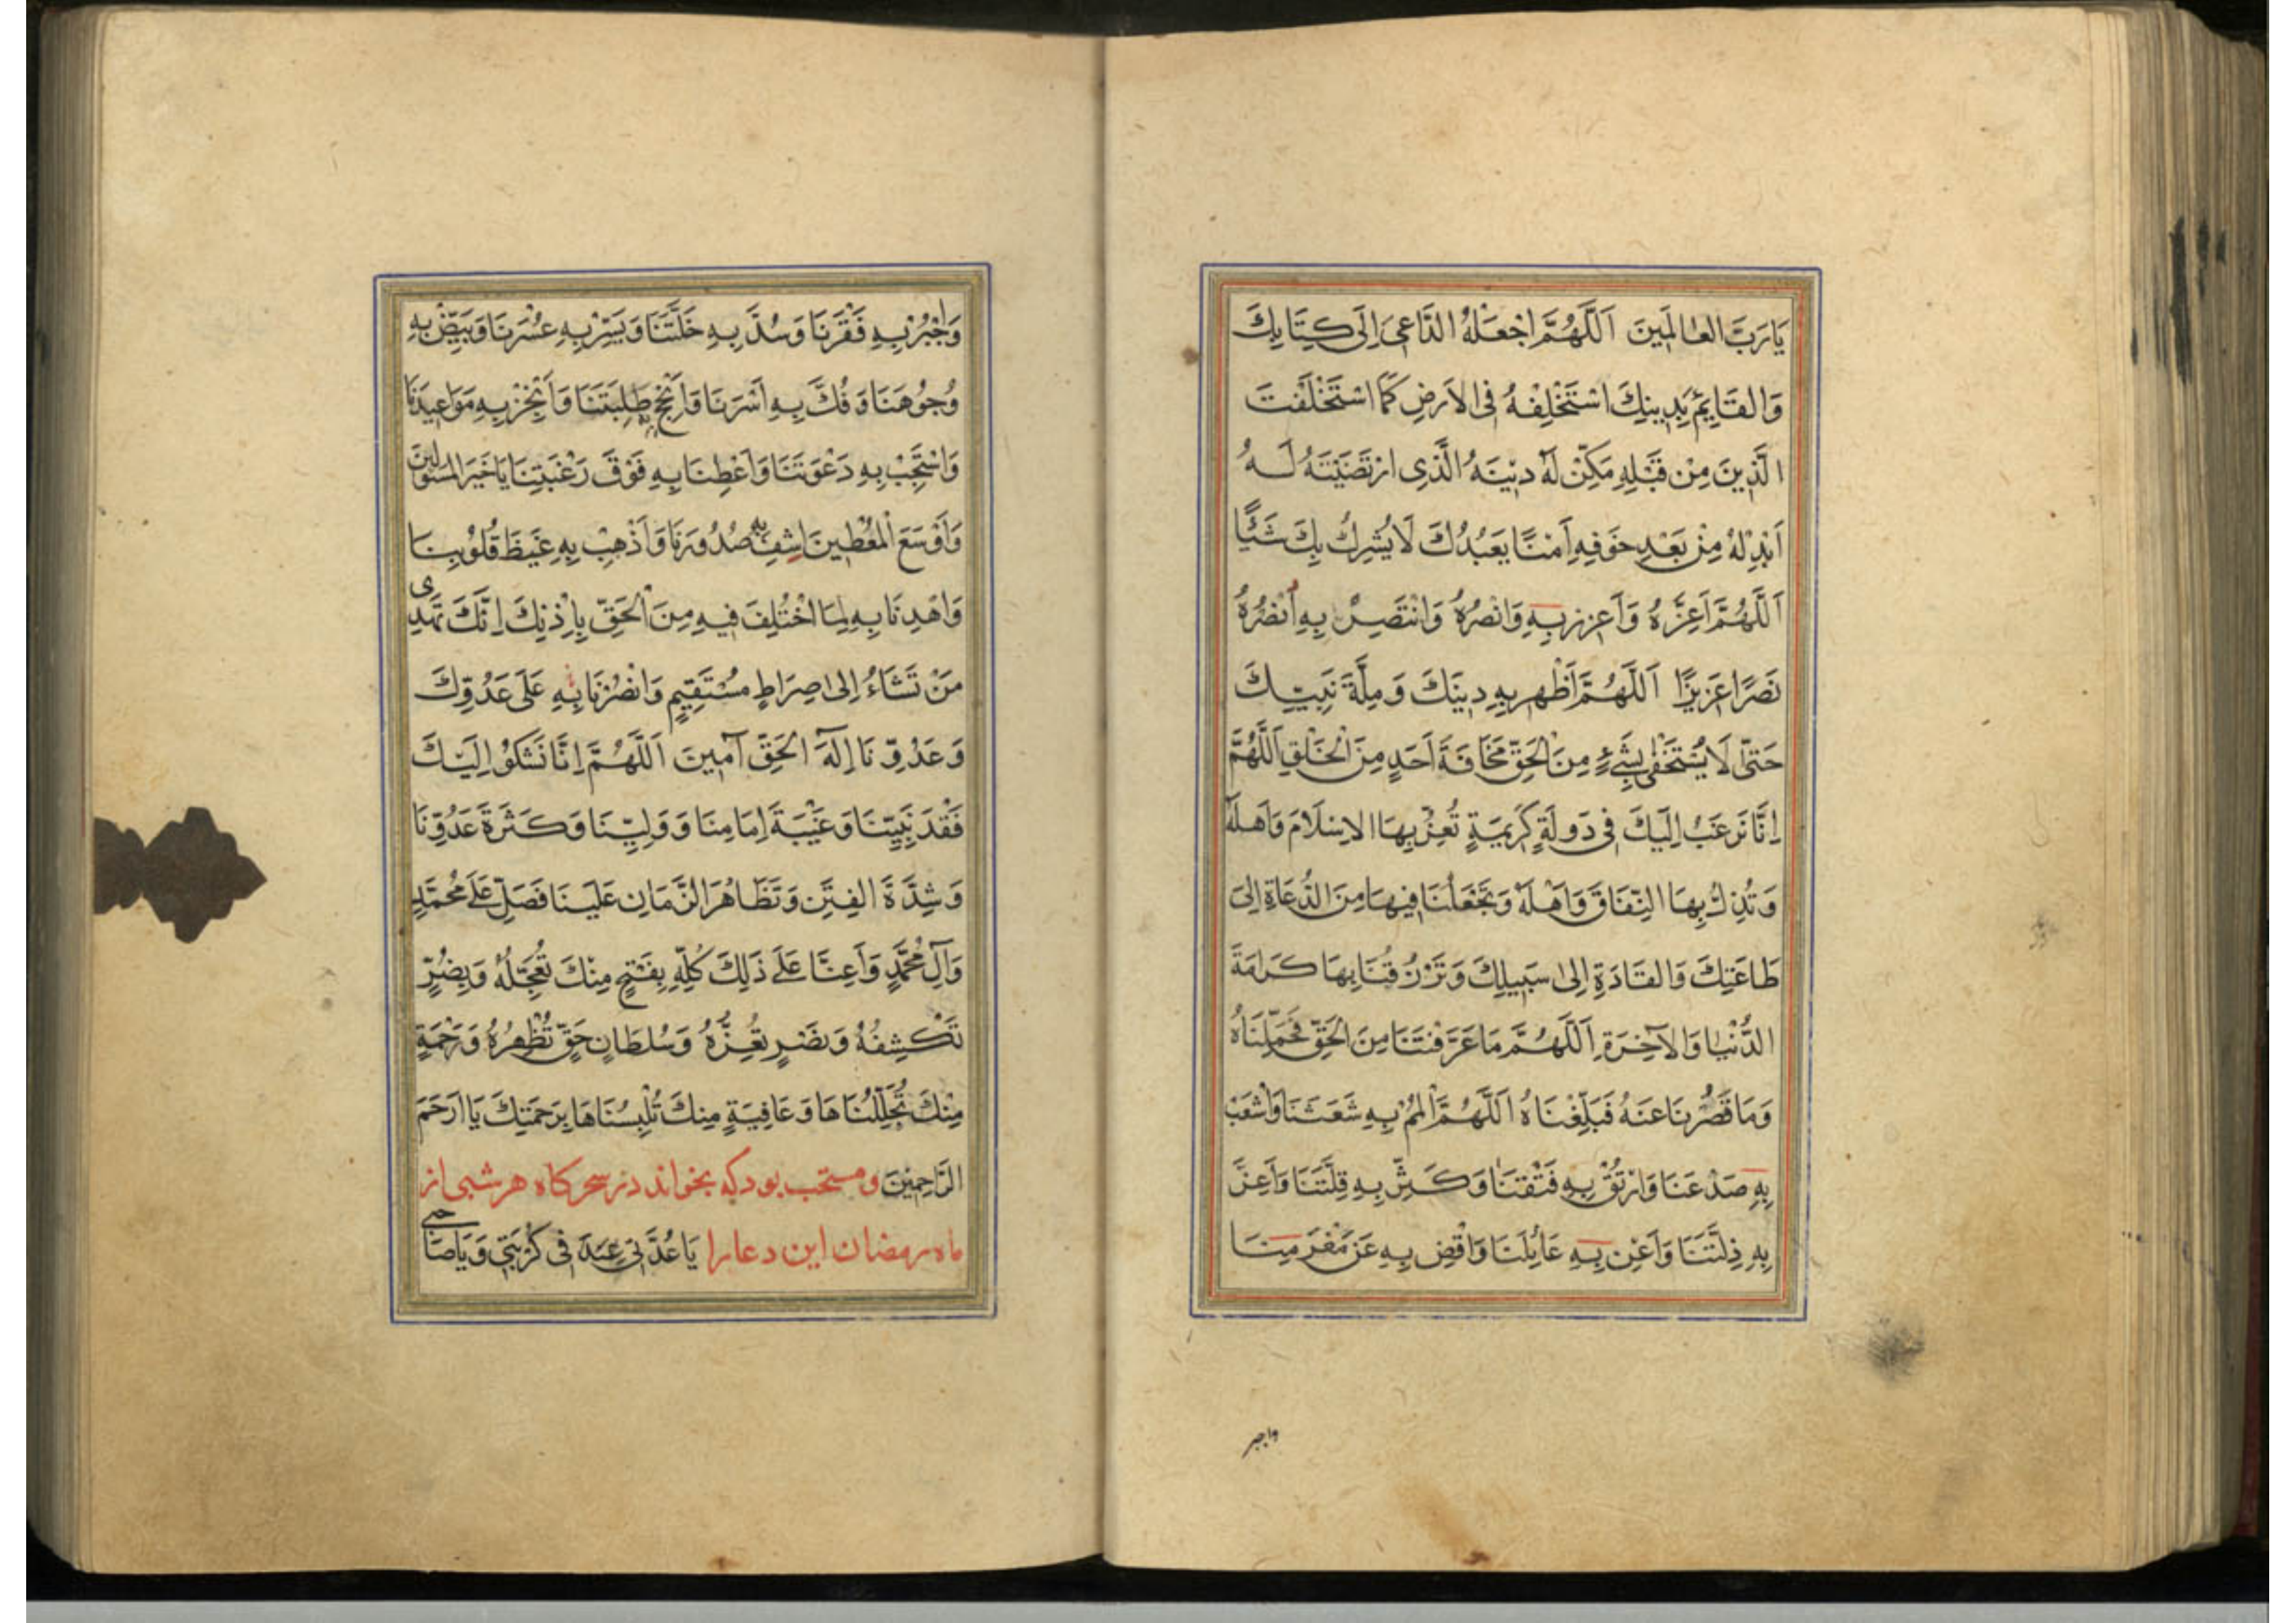 يَا رَبَّ العٰالَمِينَ اَللَّهُمَّ اجْعَلْهُ الدَّاعِىَ اِلَى كِتَابِكَ
وَالقَايِمَ بِدِينِكَ اسْتَخْلِفْهُ فِى الاَرضِ كَمَا اسْتَخْلَفْتَ
الَّذِينَ مِنْ قَبْلِهِ مَكِّنْ لَهُ دِينَهُ الَّذِى ارْتَضَيْتَهُ لَهُ
اَبْدِلْهُ مِنْ بَعْدِ خَوفِهِ اَمْنًا يَعبُدُكَ لَا يُشرِكُ بِكَ شَيْئًا
اَللَّهُمَّ اَعِزَّهُ وَاَعزِز بِهِ وَانْصُرْهُ وَانْتَصِرْ بِهِ اُنْصُرْهُ
نَصْرًا عَزِيزًا اَللَّهُمَّ اَظْهِر بِهِ دِينَكَ وَمِلَّةَ نَبِيِّكَ
حَتّى لَا يَسْتَخْفٰى بِشَىْءٍ مِنَ الْحَقِّ مَخَافَةَ اَحَدٍ مِنَ الْخَلْقِ اَللَّهُمَّ
اِنَّا نَرغَبُ اِلَيكَ فِى دَولَةٍ كَرِيمَةٍ تُعِزُّ بِهَا الاِسْلَامَ وَاَهلَهُ
وَتُذِلُّ بِهَا النِّفَاقَ وَاَهْلَهُ وَتَجْعَلُنَا فِيهَا مِنَ الدُّعَاةِ اِلىٰ
طَاعَتِكَ وَالقَادَةِ اِلىٰ سَبِيلِكَ وَتَرْزُقُنَا بِهَا كَرَامَةَ
الدُّنْيَا وَالآخِرَةِ اَللَّهُمَّ مَا عَرَّفْتَنَا مِنَ الْحَقِّ فَحَمِّلْنَاهُ
وَمَا قَصُرْنَا عَنهُ فَبَلِّغْنَاهُ اَللَّهُمَّ الْمُمْ بِهِ شَعَثَنَا وَاشْعَبْ
بِهِ صَدْعَنَا وَارْتُقْ بِهِ فَتْقَنَا وَكَثِّرْ بِهِ قِلَّتَنَا وَاَعِزَّ
بِهِ ذِلَّتَنَا وَاَغْنِ بِهِ عَائِلَنَا وَاقْضِ بِهِ عَن مَغْرَمِنَا
واجبر
وَاجْبُرْ بِهِ فَقْرَنَا وَسُدَّ بِهِ خَلَّتَنَا وَيَسِّرْ بِهِ عُسْرَنَا وَبَيِّضْ بِهِ
وُجُوهَنَا وَفُكَّ بِهِ اَسْرَنَا وَاَنْجِحْ بِهِ طَلِبَتَنَا وَاَنْجِزْ بِهِ مَوَاعِيدَنَا
وَاسْتَجِبْ بِهِ دَعْوَتَنَا وَاَعْطِنَا بِهِ فَوْقَ رَغْبَتِنَا يَا خَيرَ المَسْئُولِينَ
وَاَوْسَعَ الْمُعْطِينَ اِشفِ بِهِ صُدُورَنَا وَاَذْهِبْ بِهِ غَيظَ قُلُوبِنَا
وَاهْدِنَا بِهِ لِمَا اخْتُلِفَ فِيهِ مِنَ الْحَقِّ بِاِذْنِكَ اِنَّكَ تَهْدِى
مَنْ تَشَاءُ اِلى صِرَاطٍ مُسْتَقِيمٍ وَانْصُرْنَا بِهِ عَلَى عَدُوِّكَ
وَعَدُوِّنَا اِلهَ الْحَقِّ آمِينَ اَللَّهُمَّ اِنَّا نَشكُوْ اِلَيكَ
فَقْدَ نَبِيِّنَا وَغَيْبَةَ اِمَامِنَا وَوَلِيِّنَا وَكَثرَةَ عَدُوِّنَا
وَشِدَّةَ الفِتَنِ وَتَظَاهُرَ الزَّمَانِ عَلَينَا فَصَلِّ عَلَى مُحَمَّدٍ
وَآلِ مُحَمَّدٍ وَاَعِنَّا عَلَى ذَلِكَ كُلِّهِ بِفَتْحٍ مِنْكَ تُعَجِّلُهُ وَبِضُرٍّ
تَكْشِفُهُ وَنَصْرٍ تُعِزُّهُ وَسُلطَانِ حَقٍّ تُظْهِرُهُ وَرَحْمَةٍ
مِنْكَ تُجَلِّلُنَاهَا وَعَافِيَةٍ مِنكَ تُلْبِسُنَاهَا بِرَحمَتِكَ يَا ارَحَمَ
الرَّاحِمِينَ و مستحب بود كه بخواند در سحركاه هر شبى از
ماه رمضان اين دعا را يَا عُدَّتِى عِندَ فِى كُرْبَتِى وَيَا صَاحِبِى